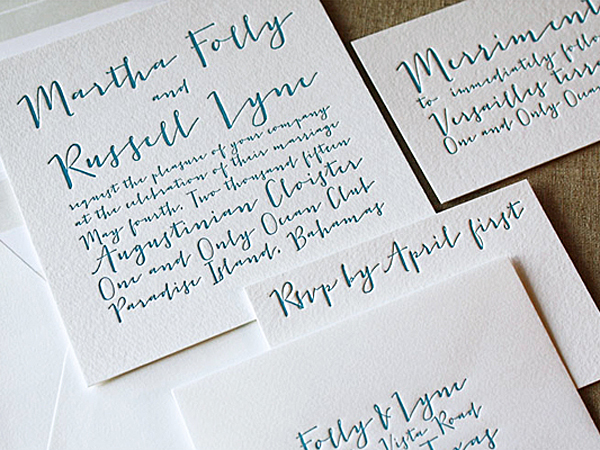 Martha Folly
and
Russell Lyne
request the pleasure of your company
at the celebration of their marriage
May fourth, Two thousand fifteen
Augustinian Cloister
One and Only Ocean Club
Paradise Island, Bahamas
Merriment
to immediately follow
Versailles terra
One and Only Ocean
Rsvp by April first
Folly & Lyne
Vista Road
Texas